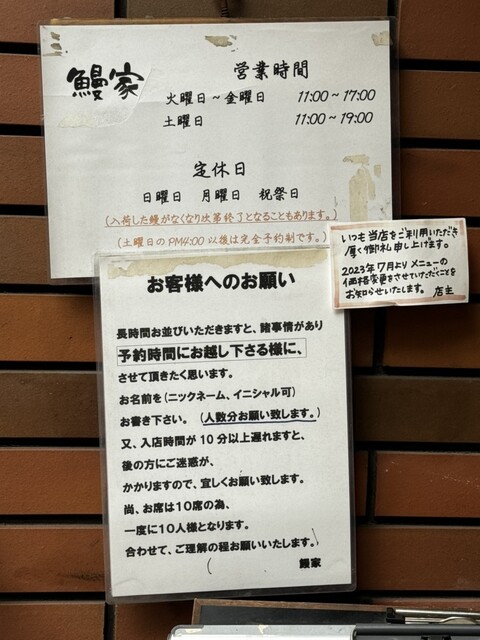 鰻家
営業時間
火曜日～金曜日 11:00～17:00
土曜日 11:00～19:00
定休日
日曜日 月曜日 祝祭日
(入荷した鰻がなくなり次第終了となることもあります。)
(土曜日のPM4:00以後は完全予約制です。)
いつも当店をご利用いただき
厚く御礼申し上げます。
2023年7月よりメニューの
価格変更をさせていただくことを
お知らせいたします。 店主
お客様へのお願い
長時間お並びいただきますと、諸事情があり
予約時間にお越し下さる様に、
させて頂きたく思います。
お名前を(ニックネーム、イニシャル可)
お書き下さい。 (人数分お願い致します。)
又、入店時間が10分以上遅れますと、
後の方にご迷惑が、
かかりますので、宜しくお願い致します。
尚、お席は10席の為、
一度に10人様となります。
合わせて、ご理解の程お願いいたします。
( )
鰻家